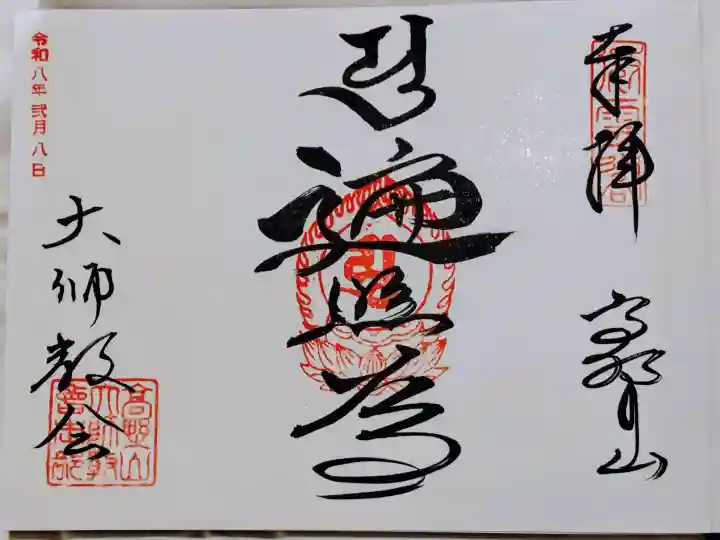 奉拝
高野山
遍照尊
令和八年 弐月 八日
大師教会
高野山
大師教
會本部